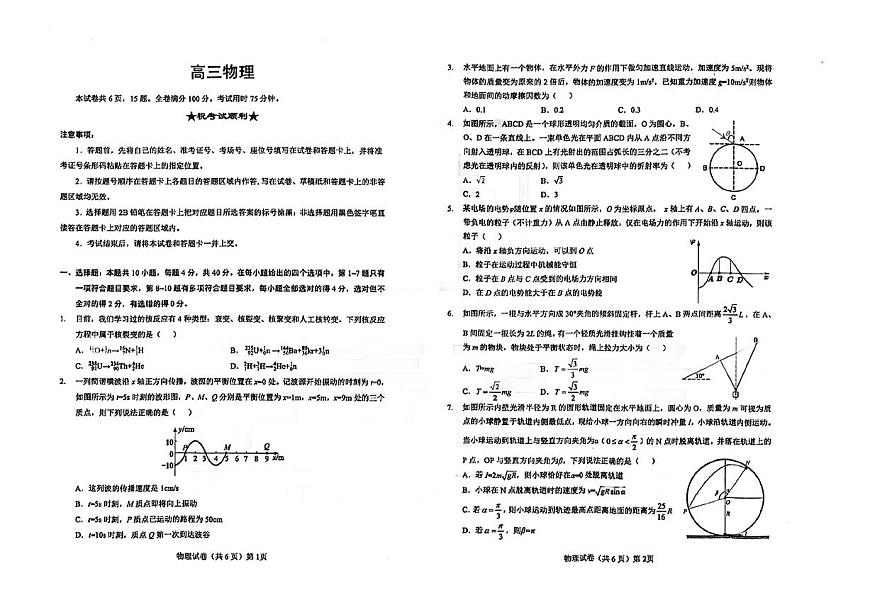 高三物理
本试卷共6页，15题。全卷满分100分。考试用时75分钟。
★祝考试顺利★
注意事项：
1．答题前，先将自己的姓名、准考证号、考场号、座位号填写在试卷和答题卡上，并将准
考证号条形码粘贴在答题卡上的指定位置。
2．请按题号顺序在答题卡上各题目的答题区域内作答，写在试卷、草稿纸和答题卡上的非答
题区域均无效。
3．选择题用2B铅笔在答题卡上把对应题目所选答案的标号涂黑；非选择题用黑色签字笔直
接答在答题卡上对应的答题区域内。
4．考试结束后，请将本试卷和答题卡一并上交。
一、选择题：本题共10小题，每题4分，共40分。在每小题给出的四个选项中，第1~7题只有
一项符合题目要求，第8~10题有多项符合题目要求，每小题全部选对的得4分，选对但不
全对的得2分，有选错的得0分。
1． 目前，我们学习过的核反应有4种类型：衰变、核裂变、核聚变和人工核转变。下列核反应
方程中属于核裂变的是（ ）
B．²³⁵₉₂U+¹₀n→¹⁴⁴₅₆Ba+⁸⁹₃₆kr+3¹₀n
C．²³⁸₉₂U→²³⁴₉₀Th+⁴₂He D．²₁H+³₁H→⁴₂He+¹₀n
2． 一列简谐横波沿x轴正方向传播，波源的平衡位置在x=0处，记波源开始振动的时刻为t=0，
如图所示为t=5s时刻的波形图，P、M、Q分别是平衡位置为x=1m，x=5m，x=9m处的三个
质点，则下列说法正确的是（ ）
y/cm
10
0
-10
P M Q
1 2 3 4 5 6 7 8 9 x/m
A．这列波的传播速度是1cm/s
B．t=5s时刻，M质点即将向上振动
C．t=5s时刻，P质点已运动的路程为50cm
D．t=10s时刻，质点Q第一次到达波谷
物理试卷（共6页）第1页
3． 水平地面上有一个物体，在水平外力F的作用下做匀加速直线运动，加速度为5m/s²。现将
物体的质量变为原来的2倍后，物体的加速度变为1m/s²，已知重力加速度g=10m/s²则物体
和地面间的动摩擦因数为（ ）
A．0.1 B．0.2 C．0.3 D．0.4
4． 如图所示，ABCD是一个球形透明均匀介质的截面，O为圆心，B、
O、D在一条直线上。一束单色光在平面ABCD内从A点沿不同方
向射入透明球，在BCD上有光射出的范围占弧长的三分之二（不考
虑光在透明球内的反射），则该单色光在透明球中的折射率为（ ）
A．√2 B．√3
C．2 D．3
A
B O D
C
5． 某电场的电势φ随位置x的情况如图所示，O为坐标原点， x轴上有A、B、C、D四点，一
带负电的粒子（不计重力）从A点由静止释放，仅在电场力的作用下开始沿x轴运动，则该
粒子（ ）
A．将沿x轴负方向运动，可以到O点
B．粒子在运动过程中机械能守恒
C．粒子在B点与C点受到的电场力方向相同
D．在D点的电势能大于在B点的电势能
φ
O A B C D x
6． 如图所示，一根与水平方向成30°夹角的倾斜固定杆，杆上A、B两点间距离2√3/3 L，在A、
B间固定一根长为2L的绳，有一个轻质光滑挂钩挂着一个质量
为m的物块，物块处于平衡状态时，绳上拉力大小为（ ）
A．T=mg B．T=√3/3 mg
C．T=√2/2 mg D．T=√3/2 mg
B
A
30°
7． 如图所示内壁光滑半径为R的圆形轨道固定在水平地面上，圆心为O，质量为m可视为质
点的小球静置于轨道内侧最低点，现给小球一方向向右的瞬时冲量I，小球沿轨道内侧运动。
当小球运动到轨道上与竖直方向夹角为α（0≤α<π/2）的N点时脱离轨道，并落在轨道上的
P点，OP与竖直方向夹角为β，下列说法正确的是（ ）
A．若I=2m√gR，则小球恰好在α=0处脱离轨道
B．小球在N点脱离轨道时的速度为v=√gRsinα
C．若α=π/3，则小球运动到轨迹最高点距离地面的距离为25/16 R
D．若α=π/3，则β=π
N
P
β
O
R
物理试卷（共6页）第2页